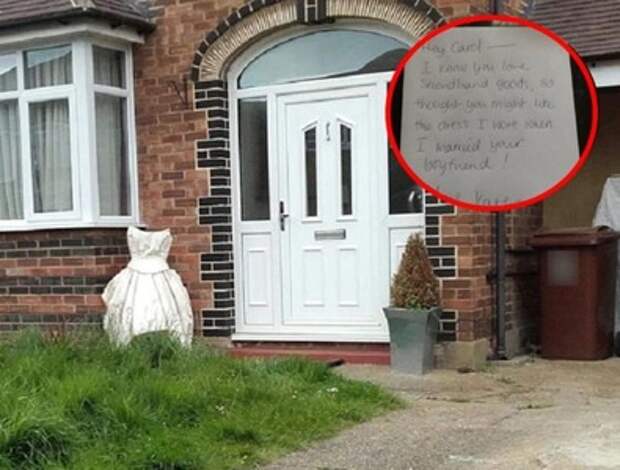 Hey Carol —
I know you love
Secondhand goods, so
thought you might like
the dress I wore when
I married your
boyfriend!